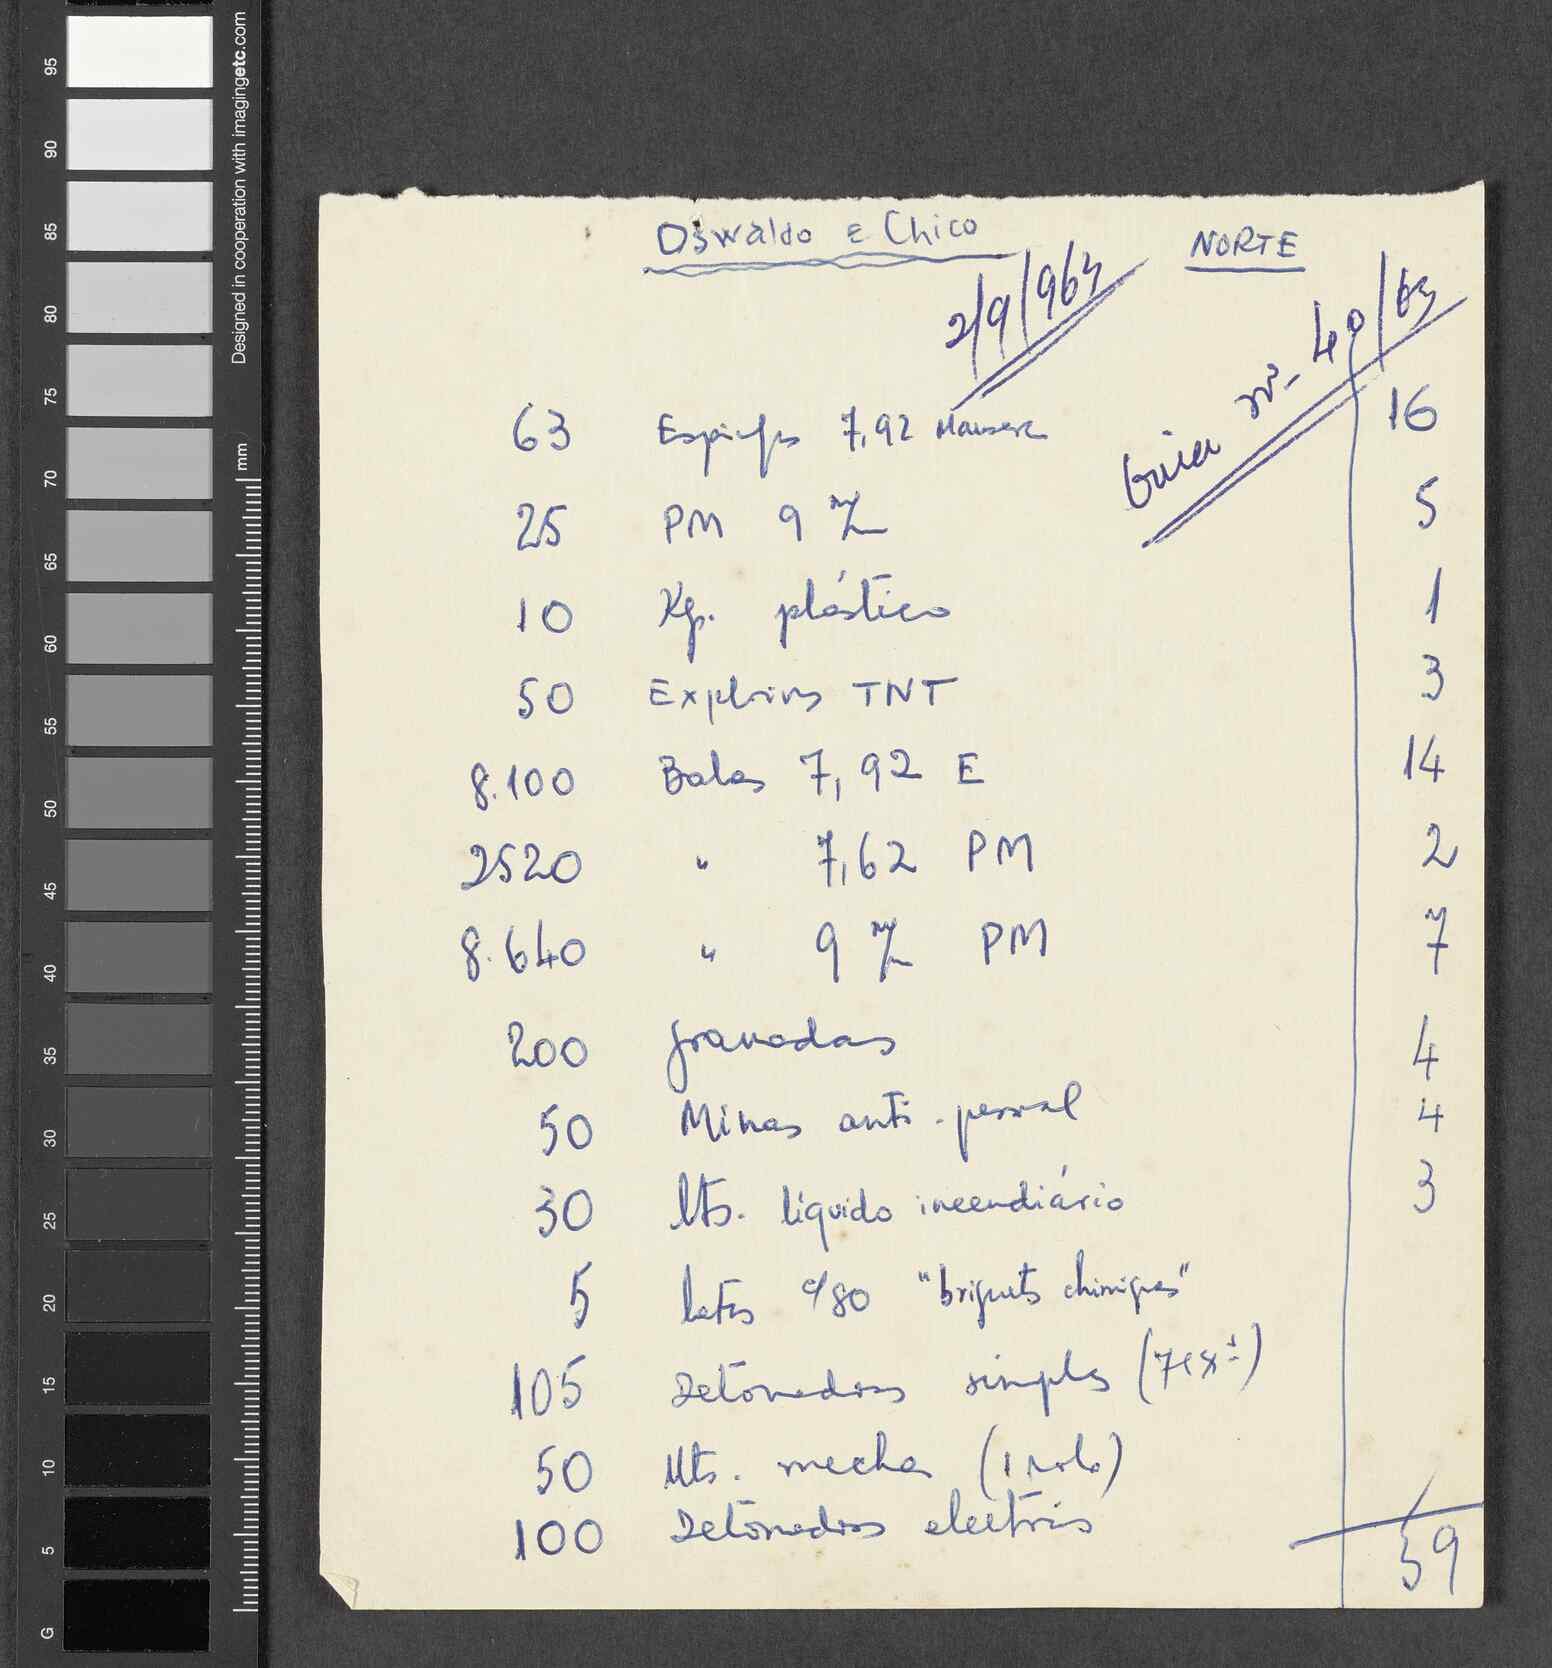 Oswaldo E Chico
NORTE
2/9/963
Guia nº 40/63
63 Espings 7,92 Mauser 16
25 PM 9 m/m 5
10 Kg. plástico 1
50 Explosivos TNT 3
8.100 Balas 7,92 E 14
2520 " 7,62 PM 2
8.640 " 9 m/m PM 7
200 granadas 4
50 Minas anti-pessoal 4
30 lts. líquido incendiário 3
5 latas c/80 "briquets chimiques"
105 Detonadores simples
50 Mts. mecha (1 rolo)
100 Detonadores electrics
59
Designed in cooperation with imagingetc.com
mm
95
90
85
80
75
70
65
60
55
50
45
40
35
30
25
20
15
10
5
G